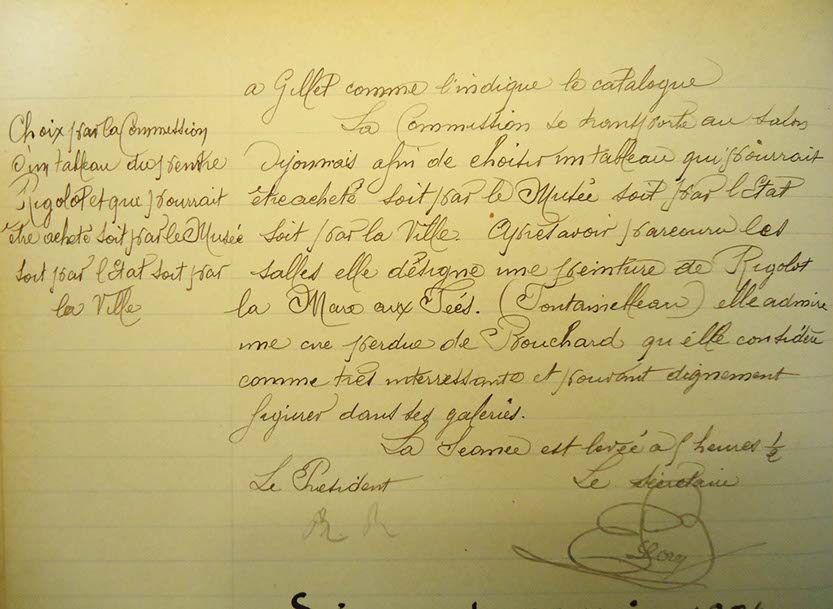 a Gillet comme l'indique le catalogue
Choix par la Commission
d'un tableau du peintre
Rigolot et que pourrait
être acheté soit par le Musée
soit par l'Etat soit par
la Ville
La Commission se transporte au salon
Dijonnais afin de choisir un tableau qui pourrait
être acheté soit par le Musée soit par l'Etat
soit par la Ville. Après avoir parcouru les
salles elle désigne une peinture de Rigolot
la Mare aux Fées. (Fontainelleau) elle admire
une cire perdue de Bouchard qu'elle considère
comme très interressante et pouvant dignement
figurer dans ses galeries.
La Séance est levée à 5 heures ½
Le Président
Le Secrétaire